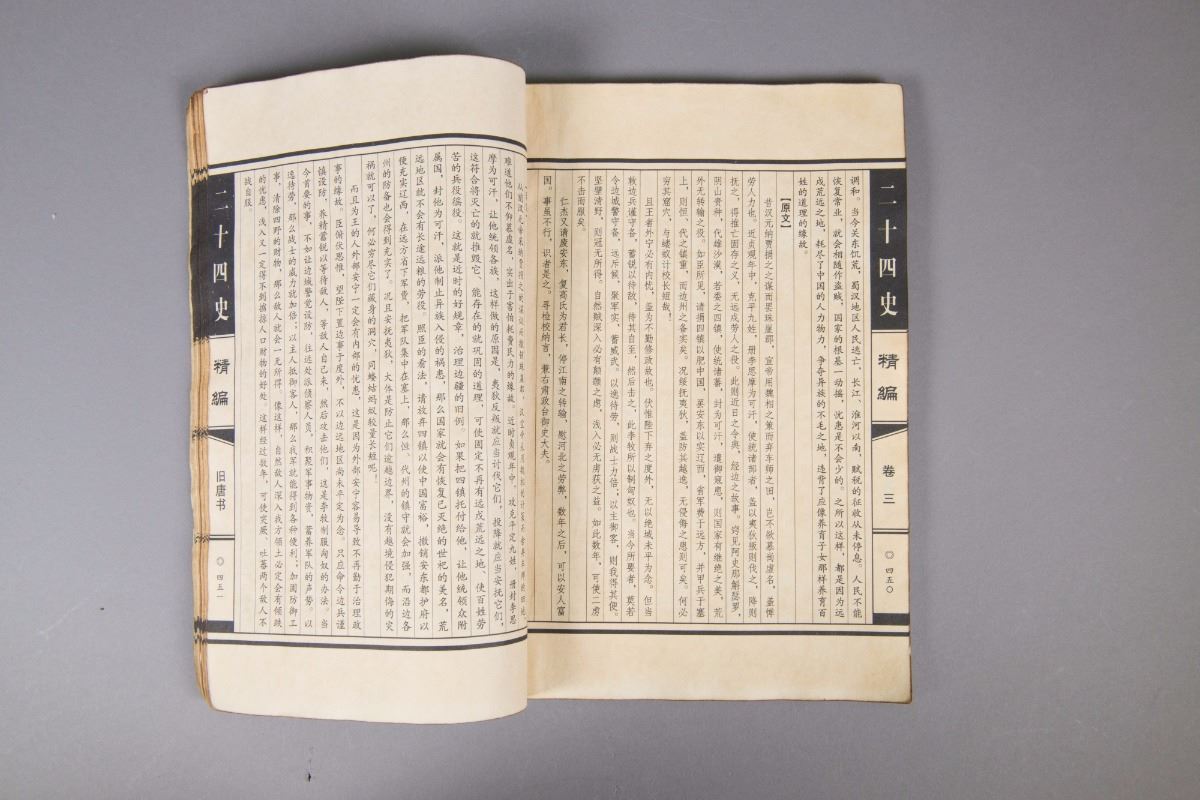 二十四史
精编
卷三
〇四五〇
调和。当今关东饥荒，蜀汉地区人民逃亡，长江、淮河以南，赋税的征收从未停息。人民不能
恢复常业，就会相随作盗贼，国家的根基一动摇，忧患是不会少的。之所以这样，都是因为远
戍荒远之地，耗尽了中国的人力物力，争夺异族的不毛之地，违背了应像养育子女那样养育百
姓的道理的缘故。
【原文】
昔汉元纳贾捐之之谋而罢珠崖郡，宣帝用魏相之策而弃车师之田，岂不欲慕尚虚名，盖惮
劳人力也。近贞观年中，克平九姓，册李思摩为可汗，使统诸部者，盖以夷狄叛则伐之，降则
抚之，得推亡固存之义，无远戍劳人之役。此则近日之令典，经边之故事。窃见阿史那斛瑟罗，
阴山贵种，代雄沙漠，若委之四镇，使统诸蕃，封为可汗，遣御寇患，则国家有继绝之美，荒
外无转输之役。如臣所见，请捐四镇以肥中国，罢安东以实辽西，省军费于远方，并甲兵于塞
上，则恒、代之镇重，而边州之备实矣。况绥抚夷狄，盖防其越逸，无侵侮之患则可矣。何必
穷其窟穴，与蝼蚁计校长短哉！
且王者外宁必有内忧，盖为不勤修政故也。伏惟陛下弃之度外，无以绝域未平为念。但当
敕边兵谨守备，蓄锐以待敌，待其自至，然后击之，此李牧所以制匈奴也。当今所要者，莫若
令边城警守备，远斥候，聚军实，蓄威武。以逸待劳，则战士力倍；以主御客，则我得其便；
坚壁清野，则寇无所得。自然贼深入必有颠踬之虑，浅入必无虏获之益。如此数年，可使二虏
不击而服矣。
仁杰又请废安东，复高氏为君长，停江南之转输，慰河北之劳弊，数年之后，可以安人富
国。事虽不行，识者是之。寻检校纳言，兼右肃政台御史大夫。
二十四史
精编
旧唐书
〇四五一
难道他们不仰慕虚名，实出于害怕耗费民力的缘故。近时贞观年中，攻克平定九姓，册封李思
摩为可汗，让他统领各族，这样做的原因是，夷狄反叛就应当讨伐它们，投降就应当安抚它们，
这符合将灭亡的就推毁它、能存在的就巩固的道理，可使固定不再有远戍荒远之地、使百姓劳
苦的兵役徭役。这就是近时的好规章，治理边疆的旧例。如果把四镇托付给他，让他统领众附
属国，封他为可汗，派他制止异族入侵的祸患，那么国家就会有恢复已灭绝的世祀的美名，荒
远地区就不会有长途运粮的劳役。照臣的看法，请放弃四镇以使中国富裕，撤销安东都护府以
便充实辽西，在远方省下军费，把军队集中在塞上，那么恒、代州的镇守就会加强，而沿边各
州的防备也会得到充实了。况且安抚夷狄，大体是防止它们逾越边界，没有越境侵犯期侮的灾
祸就可以了，何必穷尽它们藏身的洞穴，同蝼蛄蚂蚁较量长短呢！
而且为王的人外部安宁一定会有内部的忧患，这是因为外部安宁容易导致不再勤于治理政
事的缘故。臣俯伏思惟，望陛下置边事于度外，不以边远地区尚未平定为念。只应命令边兵谨
镇设防，养精蓄锐以等待敌人，等敌人自己来，然后攻击他们，这是李牧制服匈奴的办法。当
今首要的事，不如让边城警觉设防，往远处派侦察人员，积聚军事物资，蓄养军队的声势。以
逸待劳，那么战士的威力就加倍；以主人抵御客人，那么我军就能得到各种便利；加固防御工
事，清除四野的财物，那么敌人就会一无所得。像这样，自然敌人深入我方领土必定会有倾跌
的忧虑，浅入又一定得不到掳掠人口财物的好处。这样经过数年，可使突厥、吐蕃两个敌人不
战自服。